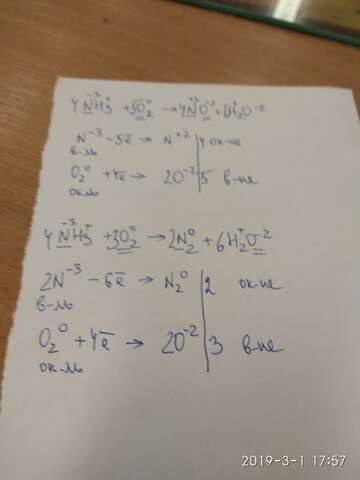 4NH₃ + 5O₂⁰ → 4NO + 6H₂⁺O⁻²
N⁻³ - 5ē → N⁺² | 4 ок-ие
в-ль
O₂⁰ + 4ē → 2O⁻² | 5 в-ие
ок-ль
4N⁻³H₃⁺ + 3O₂⁰ → 2N₂⁰ + 6H₂⁺O⁻²
2N⁻³ - 6ē → N₂⁰ | 2 ок-ие
в-ль
O₂⁰ + 4ē → 2O⁻² | 3 в-ие
ок-ль
2019-3-1 17:57